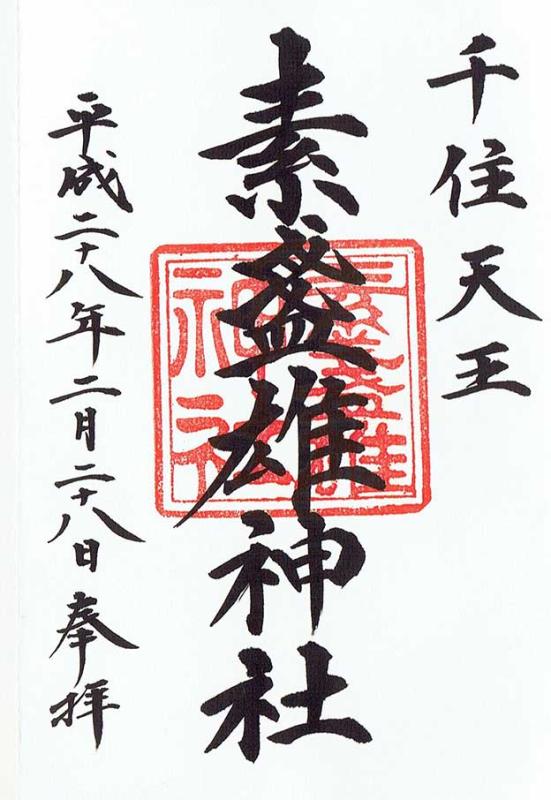 千住天王
素盞雄神社
平成二十八年二月二十八日奉拝